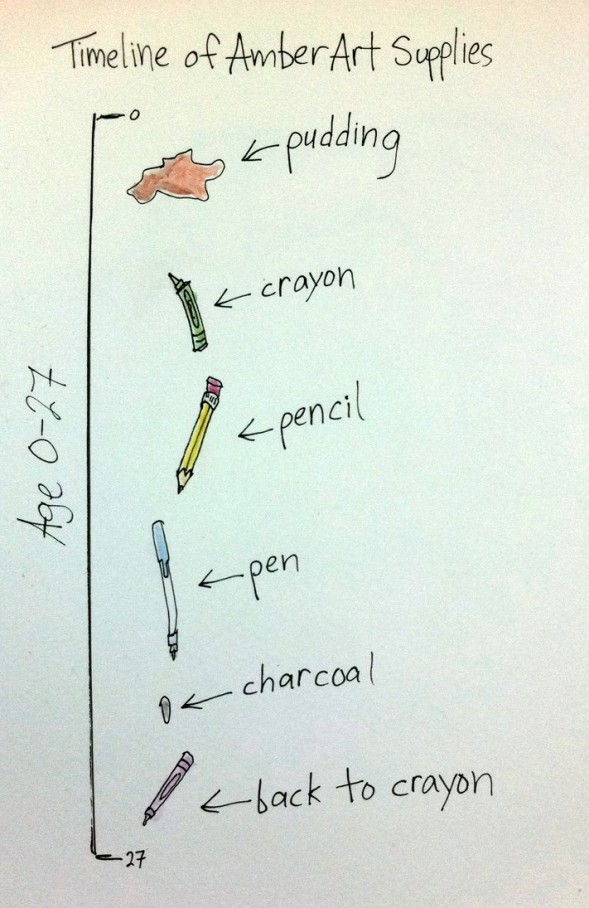 Timeline of Amber Art Supplies
0
pudding
crayon
pencil
Age 0-27
pen
charcoal
back to crayon
27